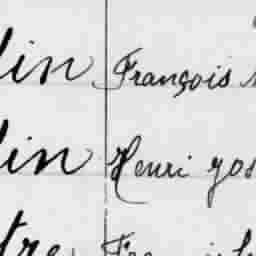 lin François
lin Henri Jos
tre